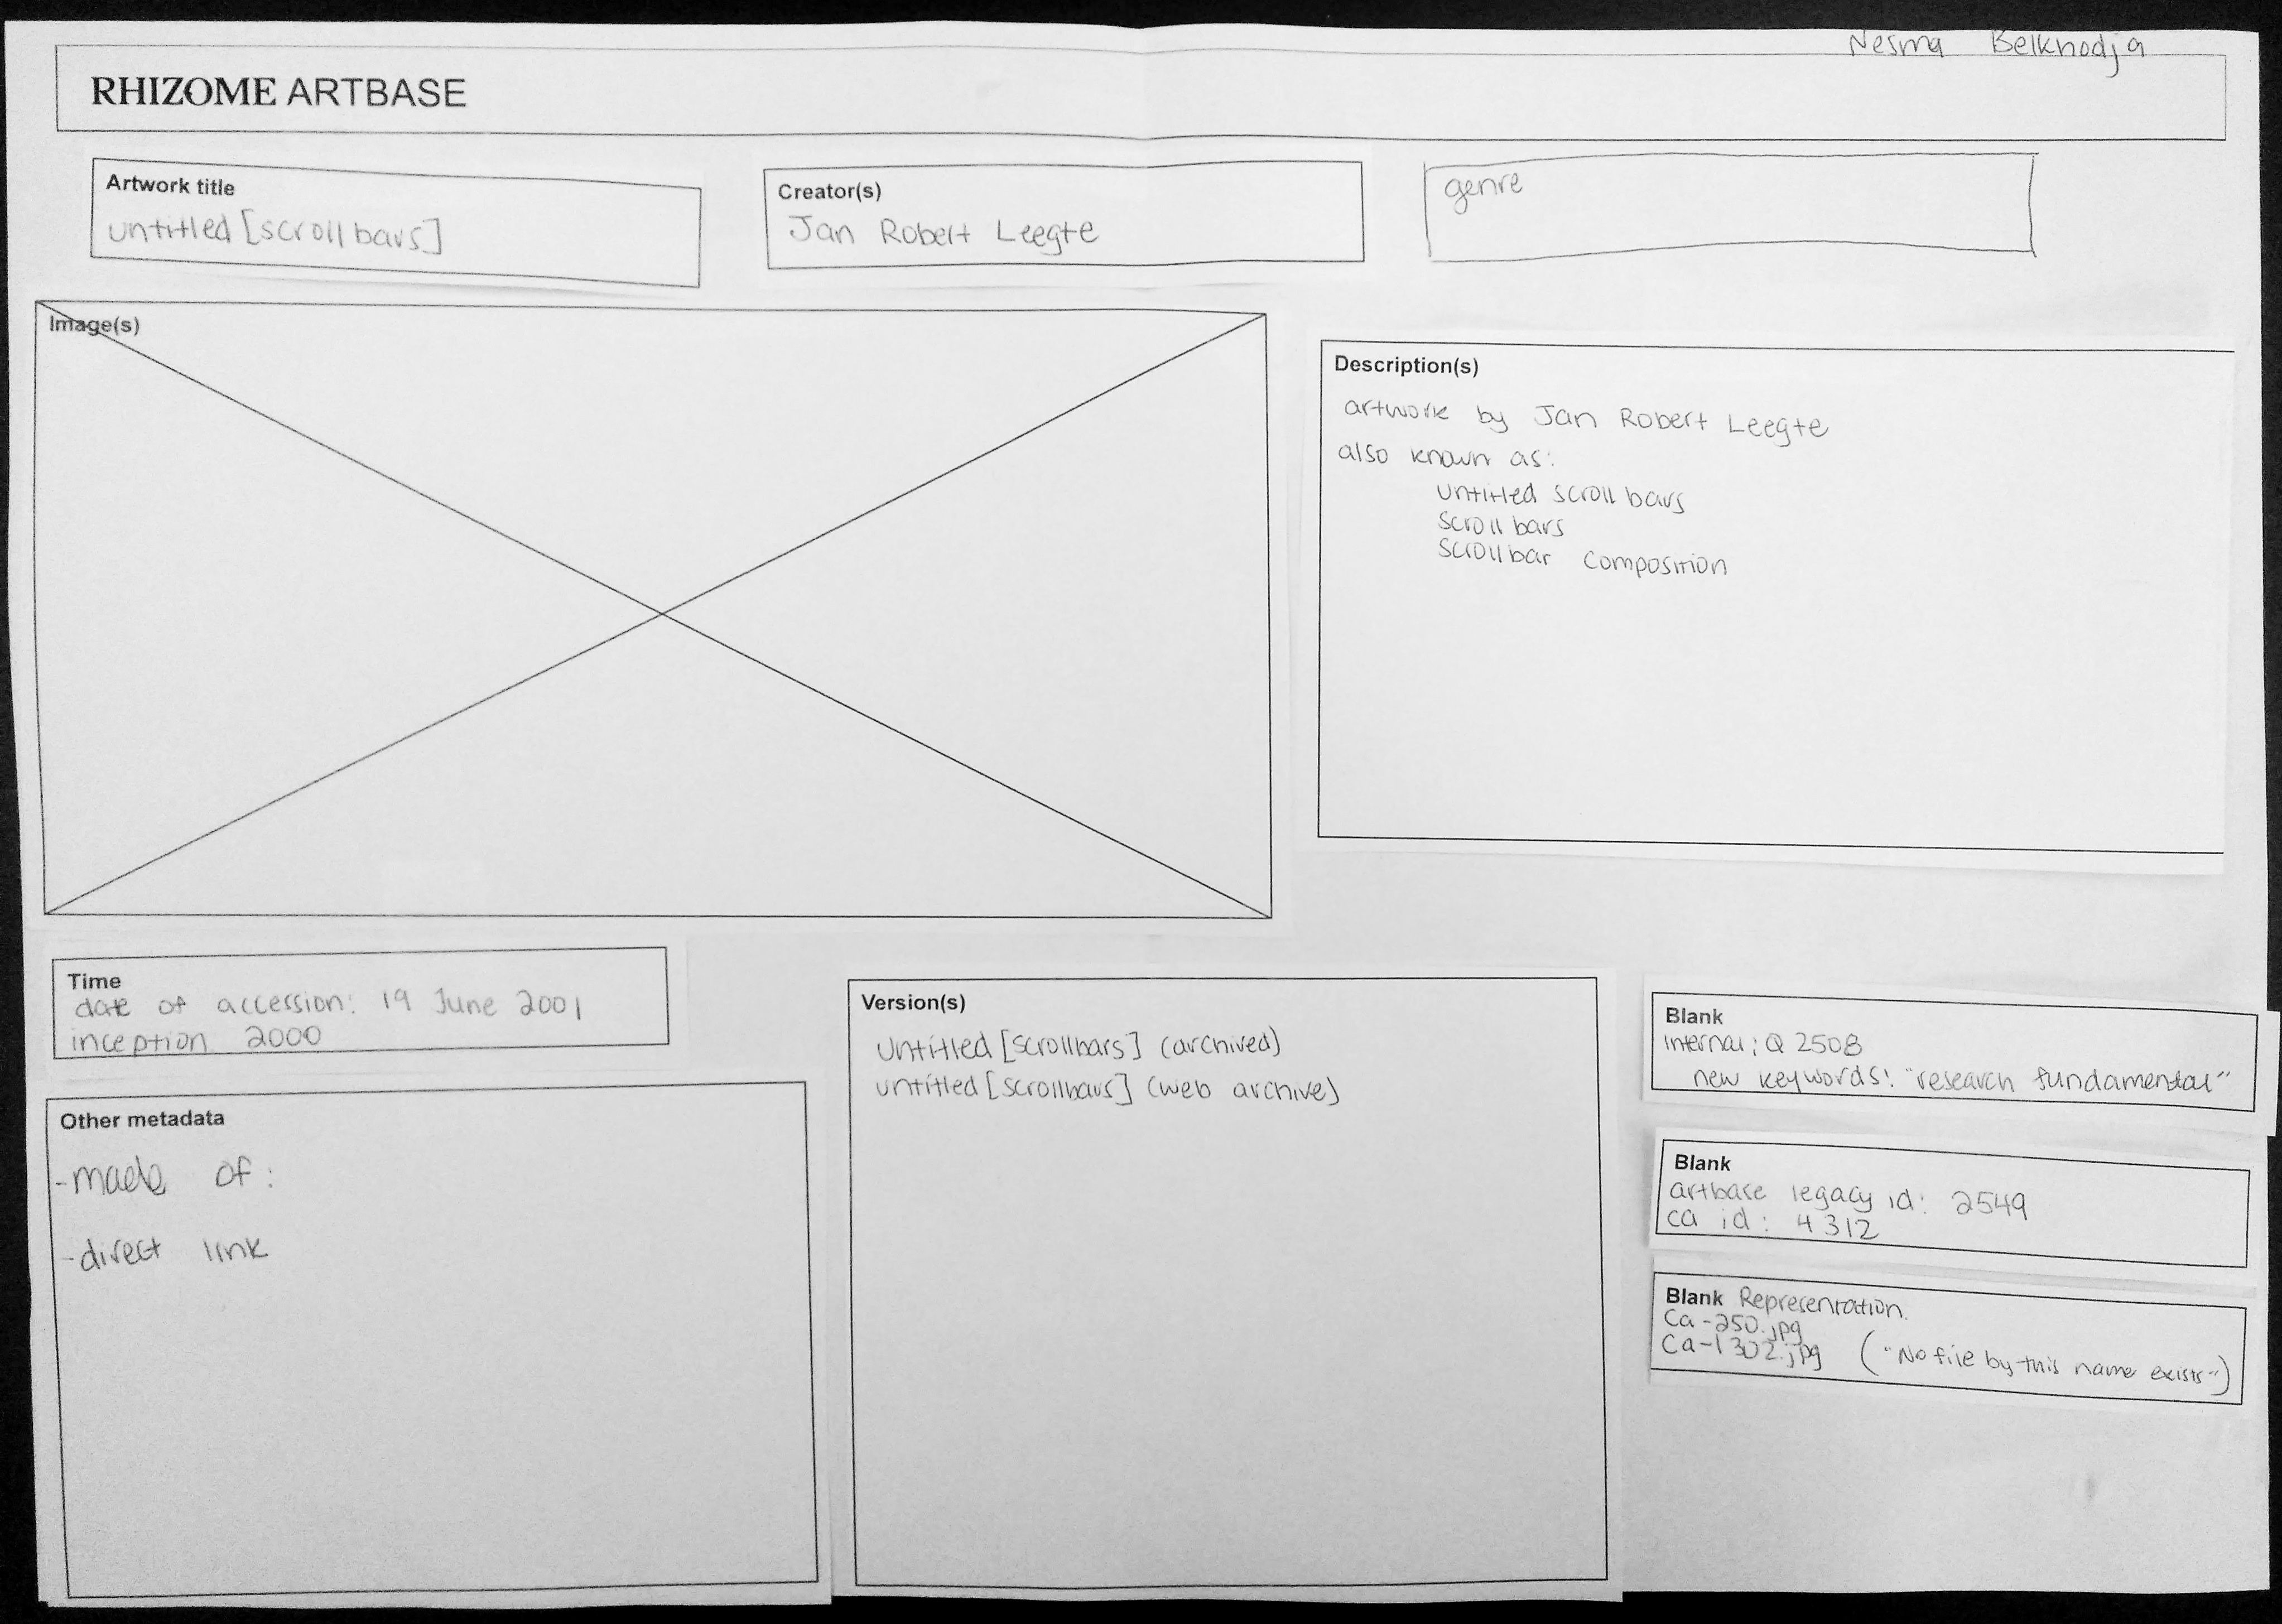 Nesma Belkhodja
RHIZOME ARTBASE
Artwork title
untitled [scrollbars]
Creator(s)
Jan Robert Leegte
genre
Image(s)
Description(s)
artwork by Jan Robert Leegte
also known as:
untitled scrollbars
scrollbars
scrollbar composition
Time
date of accession: 19 June 2001
inception 2000
Other metadata
-made of:
-direct link
Version(s)
Untitled [scrollbars] (archived)
untitled [scrollbars] (web archive)
Blank
internal: Q 2508
new keywords: "research fundamental"
Blank
artbase legacy id: 2549
ca id: 4312
Blank Representation.
Ca-250.jpg
Ca-1302.jpg ("No file by this name exists")